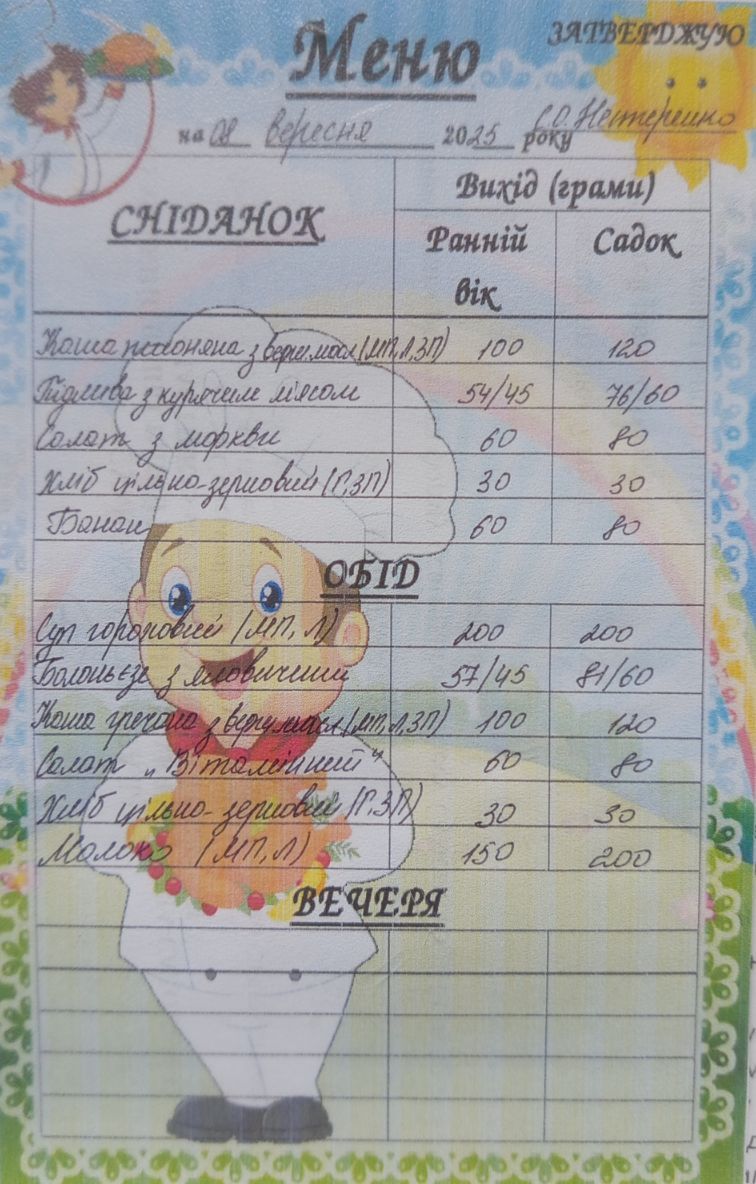 Меню
ЗАТВЕРДЖУЮ
на 08 вересня 2025 року
СНІДАНОК
Вихід (грами)
Ранній вік
Садок
Каша пшоняна з верш.масл (МП,Л,ЗП) 100 120
Підлива з курячим м'ясом 54/45 76/60
Салат з моркви 60 80
Хліб цільно-зерновий (Г,ЗП) 30 30
Банан 60 80
ОБІД
Суп гороховий (МП, Л) 200 200
Болоньєзе з яловичини 57/45 81/60
Каша гречана з верш.масл (МП,Л,ЗП) 100 120
Салат „Вітамінний" 60 80
Хліб цільно-зерновий (Г.ЗП) 30 30
Молоко (МП,Л) 150 200
ВЕЧЕРЯ